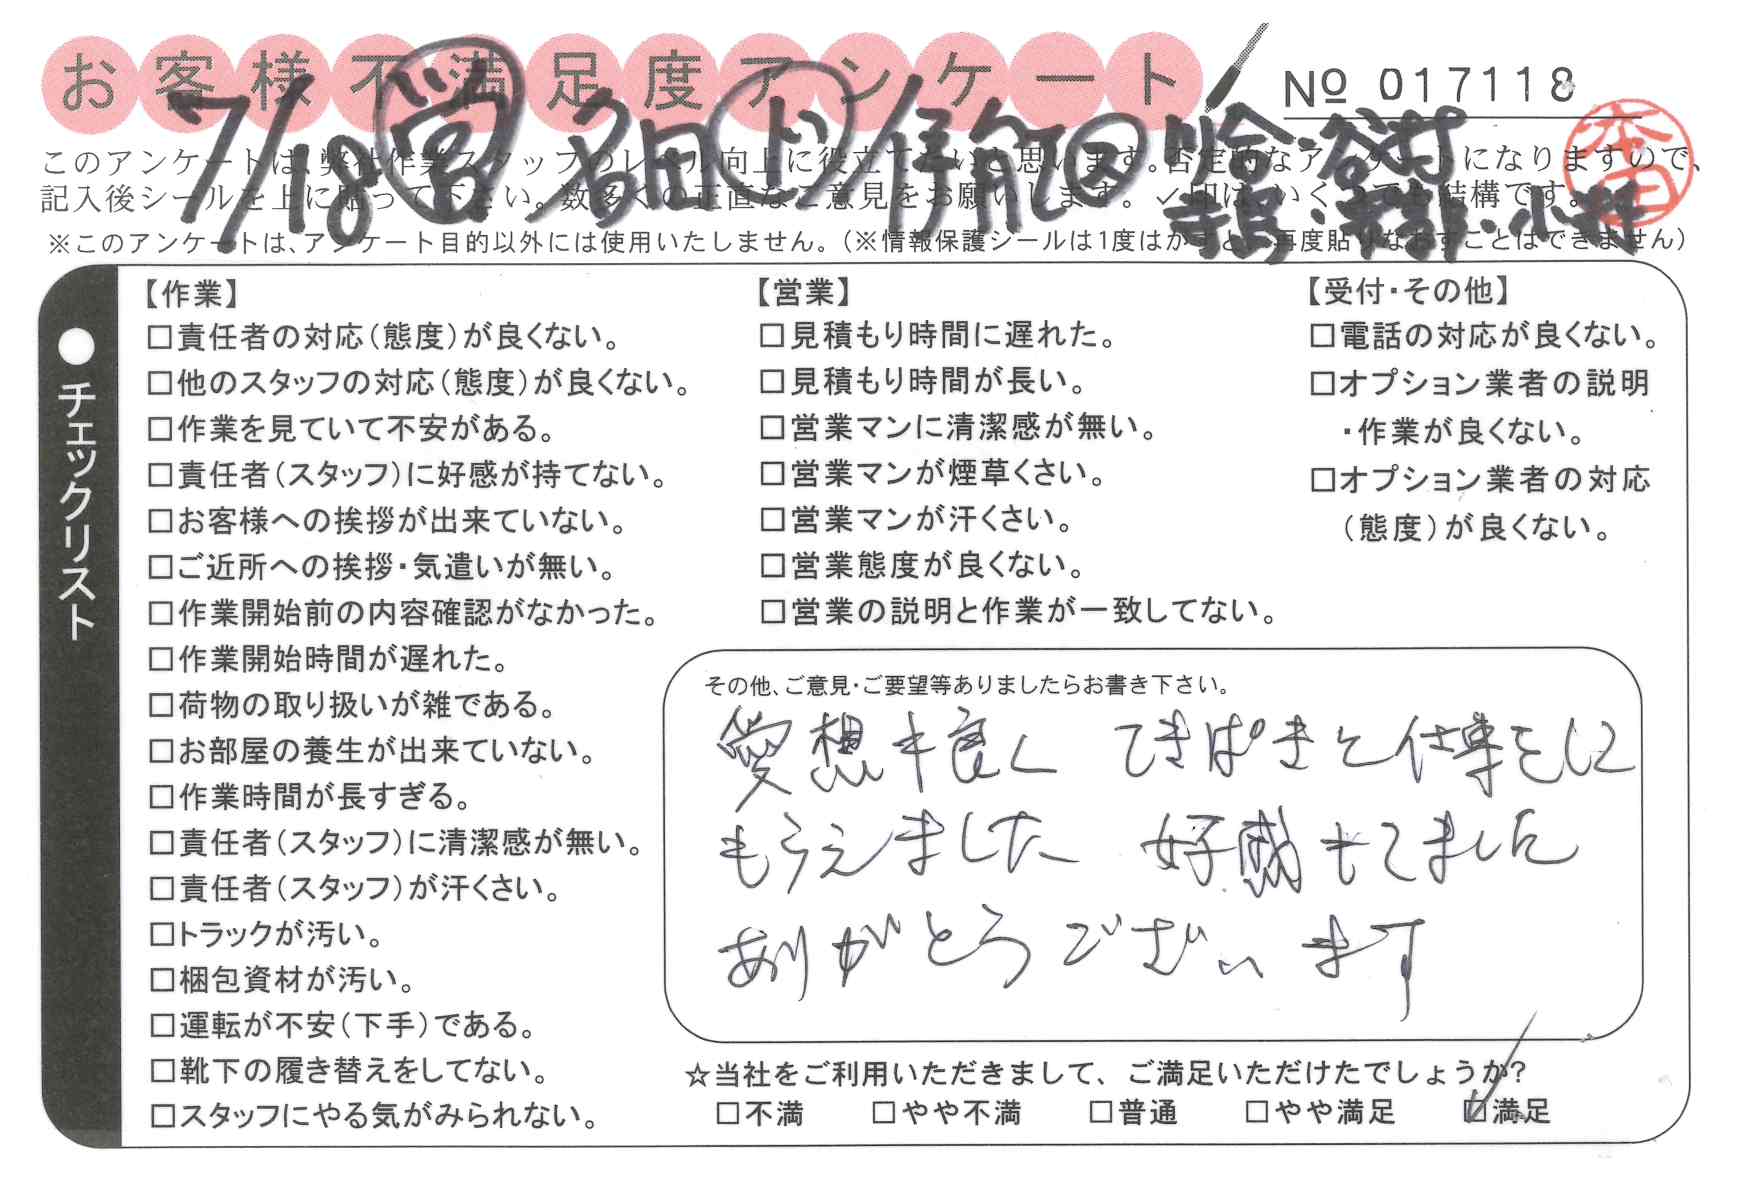 お客様不満足度アンケート
№ 017118
7/18 営 多田 ド 伊能 回 川合・谷村
寺島・・小林
本田
このアンケートは、弊社作業スタッフのレベル向上に役立てたいと思います。否定的なアンケートになりますので、
記入後シールを上に貼って下さい。数多くの正直なご意見をお願いします。✓印は、いくつでも結構です。
※このアンケートは、アンケート目的以外には使用いたしません。(※情報保護シールは1度はがすと、再度貼りなおすことはできません)
●チェックリスト
【作業】
□責任者の対応(態度)が良くない。
□他のスタッフの対応(態度)が良くない。
□作業を見ていて不安がある。
□責任者(スタッフ)に好感が持てない。
□お客様への挨拶が出来ていない。
□ご近所への挨拶・気遣いが無い。
□作業開始前の内容確認がなかった。
□作業開始時間が遅れた。
□荷物の取り扱いが雑である。
□お部屋の養生が出来ていない。
□作業時間が長すぎる。
□責任者(スタッフ)に清潔感が無い。
□責任者(スタッフ)が汗くさい。
□トラックが汚い。
□梱包資材が汚い。
□運転が不安(下手)である。
□靴下の履き替えをしてない。
□スタッフにやる気がみられない。
【営業】
□見積もり時間に遅れた。
□見積もり時間が長い。
□営業マンに清潔感が無い。
□営業マンが煙草くさい。
□営業マンが汗くさい。
□営業態度が良くない。
□営業の説明と作業が一致してない。
【受付・その他】
□電話の対応が良くない。
□オプション業者の説明
・作業が良くない。
□オプション業者の対応
(態度)が良くない。
その他、ご意見・ご要望等ありましたらお書き下さい。
愛想も良く てきぱきと仕事をして
もらえました 好感もてました
ありがとうございます
☆当社をご利用いただきまして、ご満足いただけたでしょうか?
□不満 □やや不満 □普通 □やや満足 ☑満足